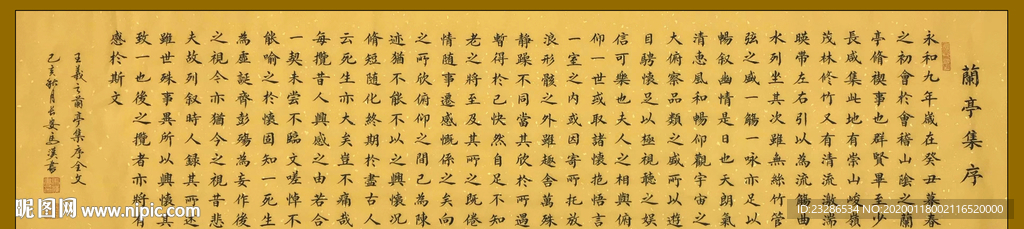 蘭亭集序
永和九年歲在癸丑暮春
之初會於會稽山陰之蘭
亭脩禊事也群賢畢至少
長咸集此地有崇山峻嶺
茂林修竹又有清流激湍
暎帶左右引以為流觴曲
水列坐其次雖無絲竹管
弦之盛一觴一詠亦足以
暢叙幽情是日也天朗氣
清惠風和暢仰觀宇宙之
大俯察品類之盛所以遊
目騁懷足以極視聽之娛
信可樂也夫人之相與俯
仰一世或取諸懷抱悟言
一室之內或因寄所託放
浪形骸之外雖趣舍萬殊
靜躁不同當其欣於所遇
暫得於己快然自足不知
老之將至及其所之既倦
情隨事遷感慨係之矣向
之所欣俯仰之間已為陳
迹猶不能不以之興懷況
脩短隨化終期於盡古人
云死生亦大矣豈不痛哉
每攬昔人興感之由若合
一契未嘗不臨文嗟悼不
能喻之於懷固知一死生
為虛誕齊彭殤為妄作後
之視今亦猶今之視昔悲
夫故列叙時人錄其所述
雖世殊事異所以興懷其
致一也後之攬者亦將有
感於斯文
王羲之蘭亭集序全文
己亥秋月長安馬漢書
昵图网 www.nipic.com
ID:23286534 NO:20200118002116520000